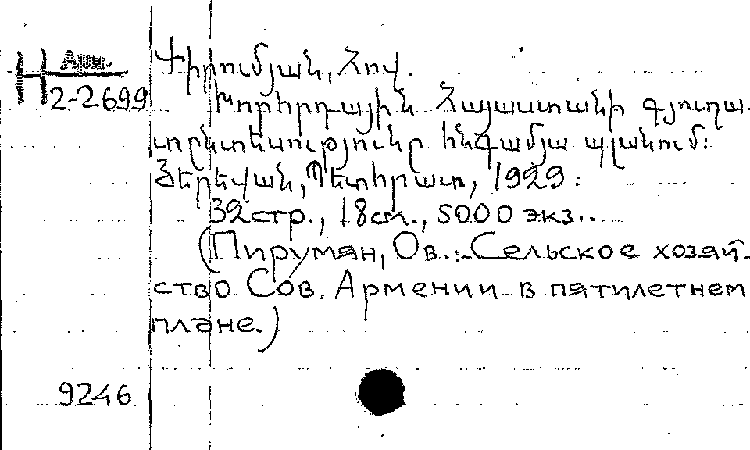 Арм.
Փիրումյան, Հով.
Н 2-2699
Խորհրդային Հայաստանի գյուղա-
տնտեսությունը հնգամյա պլանում:
Յերեվան, Պետհրատ, 1929:
32 стр., 18 см., 5000 экз..
(Пируман, Ов.:-Сельское хозяй-
ство Сов. Армении в пятилетнем
плане.)
9246